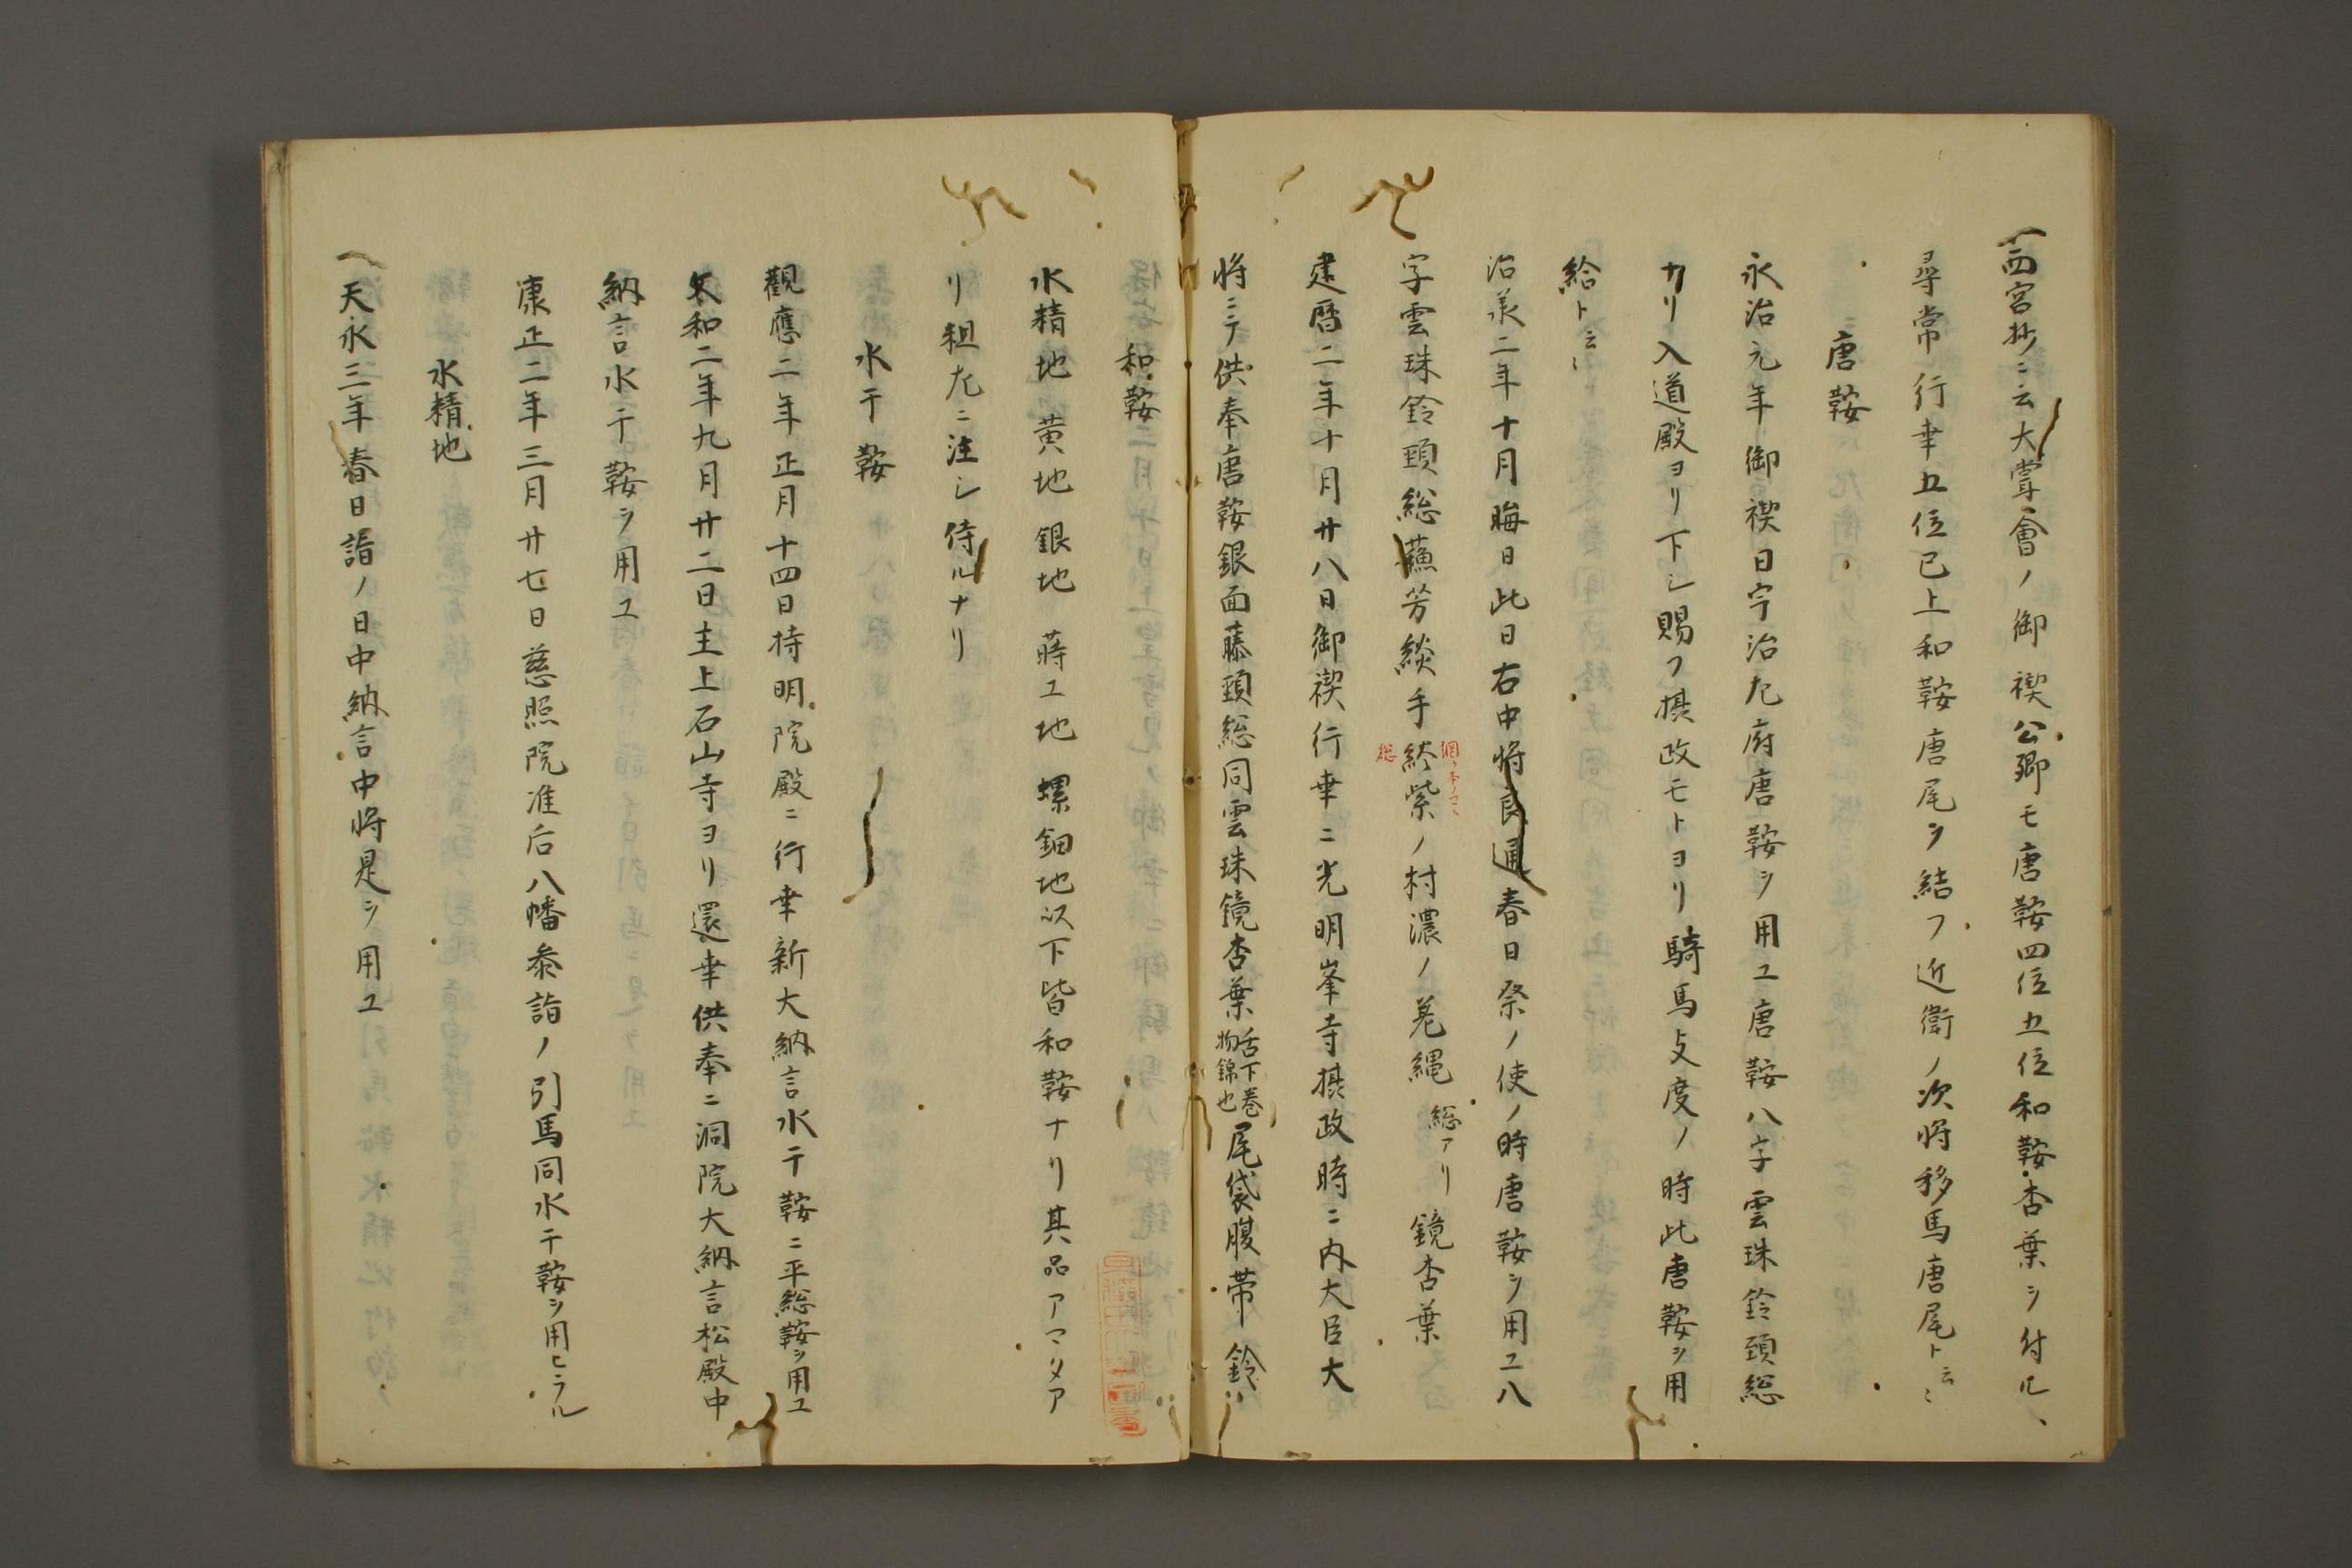 西宮抄ニ云大嘗會ノ御禊公卿モ唐鞍四位五位和鞍杏葉ヲ付ル、
尋常行幸五位已上和鞍唐尾ヲ結フ近衛ノ次将移馬唐尾ト云々
唐鞍
永治元年御禊日宇治左府唐鞍ヲ用ユ唐鞍八字雲珠鈴頭総
カリ入道殿ヨリ下シ賜フ摂政モトヨリ騎馬支度ノ時此唐鞍ヲ用
給ト云々
治承二年十月晦日此日右中将良通春日祭ノ使ノ時唐鞍ヲ用ユ八
字雲珠鈴頭総蘓芳緂手綂紫ノ村濃ノ差縄総アリ鏡杏葉
総
建暦二年十月廿八日御禊行幸ニ光明峯寺摂政時ニ内大臣大
将ニテ供奉唐鞍銀面藤頭総同雲珠鏡杏葉舌下巻物錦也尾袋腹帯鈴
和鞍
水精地 黄地 銀地 蒔エ地 螺鈿地以下皆和鞍ナリ其品アマタア
リ粗左ニ注シ侍ルナリ
水干鞍
觀應二年正月十四日持明院殿ニ行幸新大納言水干鞍ニ平総鞦ヲ用ユ
文和二年九月廿二日主上石山寺ヨリ還幸供奉ニ洞院大納言松殿中
納言水干鞍ヲ用ユ
康正二年三月廿七日慈照院准后八幡参詣ノ引馬同水干鞍ヲ用ヒラル
水精地
天永三年春日詣ノ日中納言中将是ヲ用ユ